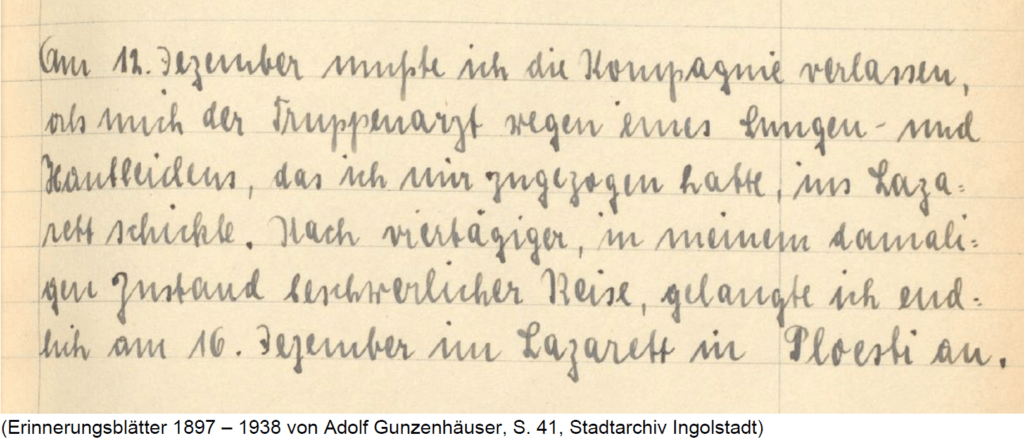 Am 12. Dezember mußte ich die Kompagnie verlassen,
als mich der Truppenarzt wegen eines Lungen- und
Hautleidens, das ich mir zugezogen hatte, ins Laza=
rett schickte. Nach viertägiger, in meinem damali=
gen Zustand beschwerlicher Reise, gelangte ich end=
lich am 16. Dezember im Lazarett in Ploesti an.
(Erinnerungsblätter 1897 – 1938 von Adolf Gunzenhäuser, S. 41, Stadtarchiv Ingolstadt)